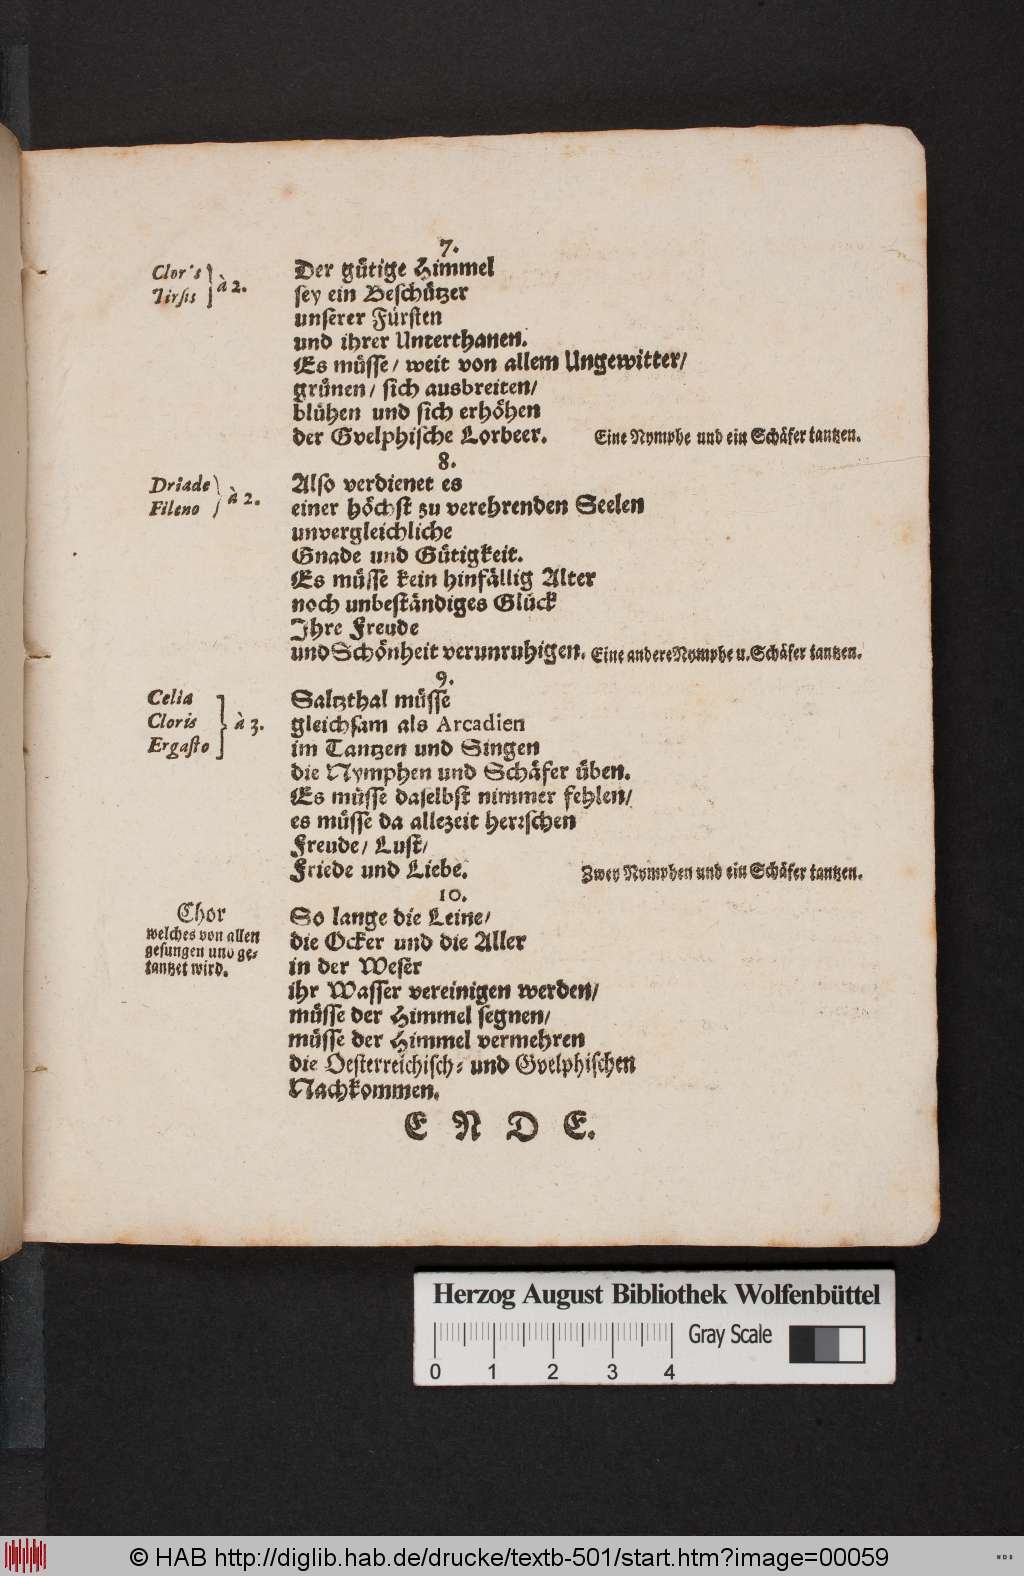 7.
Cloris
Tirsis
à 2.
Der gütige Himmel
sey ein Beschützer
unserer Fürsten
und ihrer Unterthanen.
Es müsse / weit von allem Ungewitter /
grünen / sich ausbreiten /
blühen und sich erhöhen
der Gvelphische Lorbeer. Eine Nymphe und ein Schäfer tantzen.
8.
Driade
Fileno
à 2.
Also verdienet es
einer höchst zu verehrenden Seelen
unvergleichliche
Gnade und Gütigkeit.
Es müsse kein hinfällig Alter
noch unbeständiges Glück
Ihre Freude
und Schönheit verunruhigen. Eine andere Nymphe u. Schäfer tantzen.
9.
Celia
Cloris
Ergasto
à 3.
Saltzthal müsse
gleichsam als Arcadien
im Tantzen und Singen
die Nymphen und Schäfer üben.
Es müsse daselbst nimmer fehlen /
es müsse da allezeit herrschen
Freude / Lust /
Friede und Liebe. Zwey Nymphen und ein Schäfer tantzen.
10.
Chor
welches von allen
gesungen und ge-
tantzet wird.
So lange die Leine /
die Ocker und die Aller
in der Weser
ihr Wasser vereinigen werden /
müsse der Himmel segnen /
müsse der Himmel vermehren
die Oesterreichisch- und Gvelphischen
Nachkommen.
E N D E.
Herzog August Bibliothek Wolfenbüttel
Gray Scale
0 1 2 3 4
© HAB http://diglib.hab.de/drucke/textb-501/start.htm?image=00059